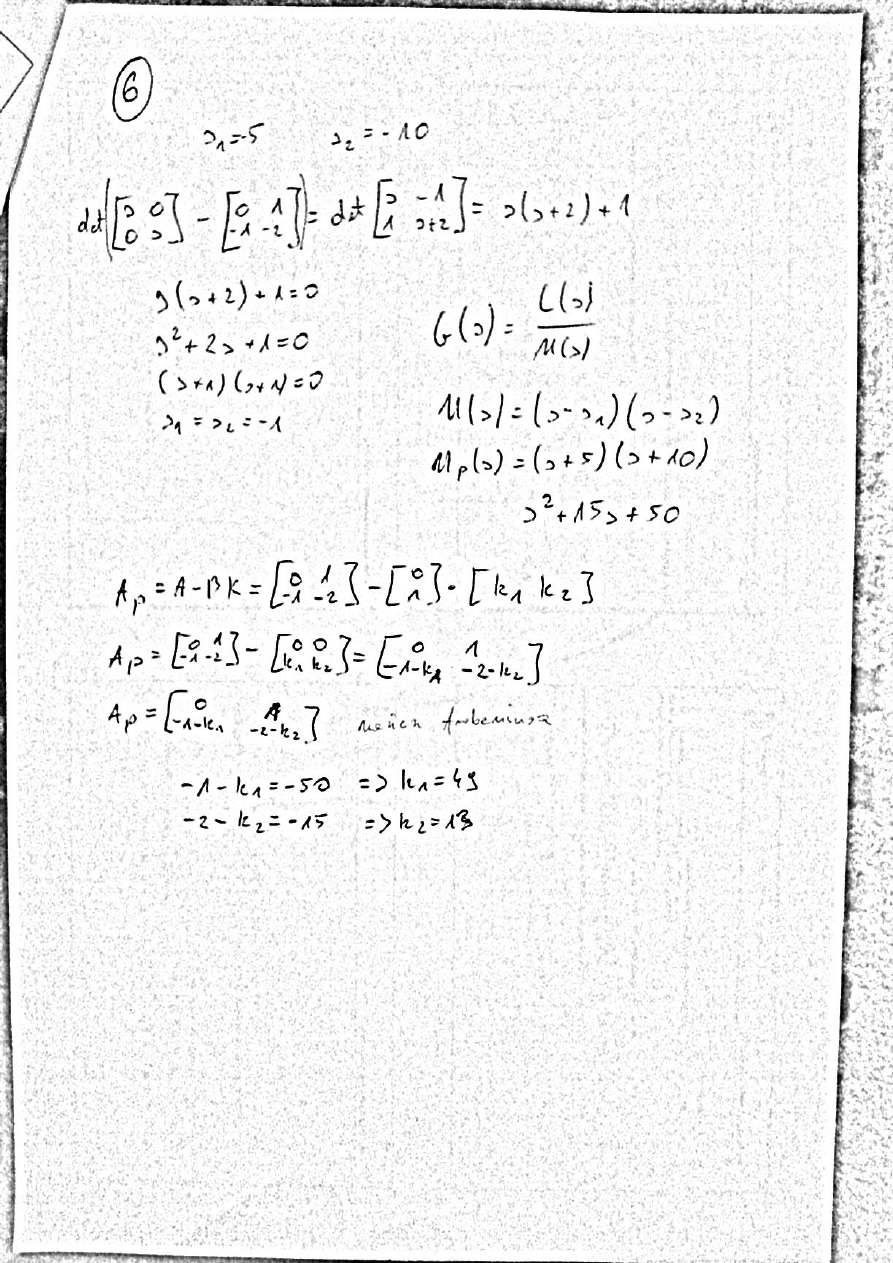 6
s₁=-5 s₂=-10
det([s 0; 0 s] - [0 1; -1 -2]) = det [s -1; 1 s+2] = s(s+2)+1
s(s+2)+1=0
s²+2s+1=0
(s+1)(s+1)=0
s₁=s₂=-1
G(s) = L(s)/M(s)
M(s)=(s-s₁)(s-s₂)
Mₚ(s)=(s+5)(s+10)
s²+15s+50
Aₚ = A-BK = [0 1; -1 -2] - [0; 1] · [k₁ k₂]
Aₚ = [0 1; -1 -2] - [0 0; k₁ k₂] = [0 1; -1-k₁ -2-k₂]
Aₚ = [0 1; -1-k₁ -2-k₂] Frobeniusa
-1-k₁=-50 => k₁=49
-2-k₂=-15 => k₂=13